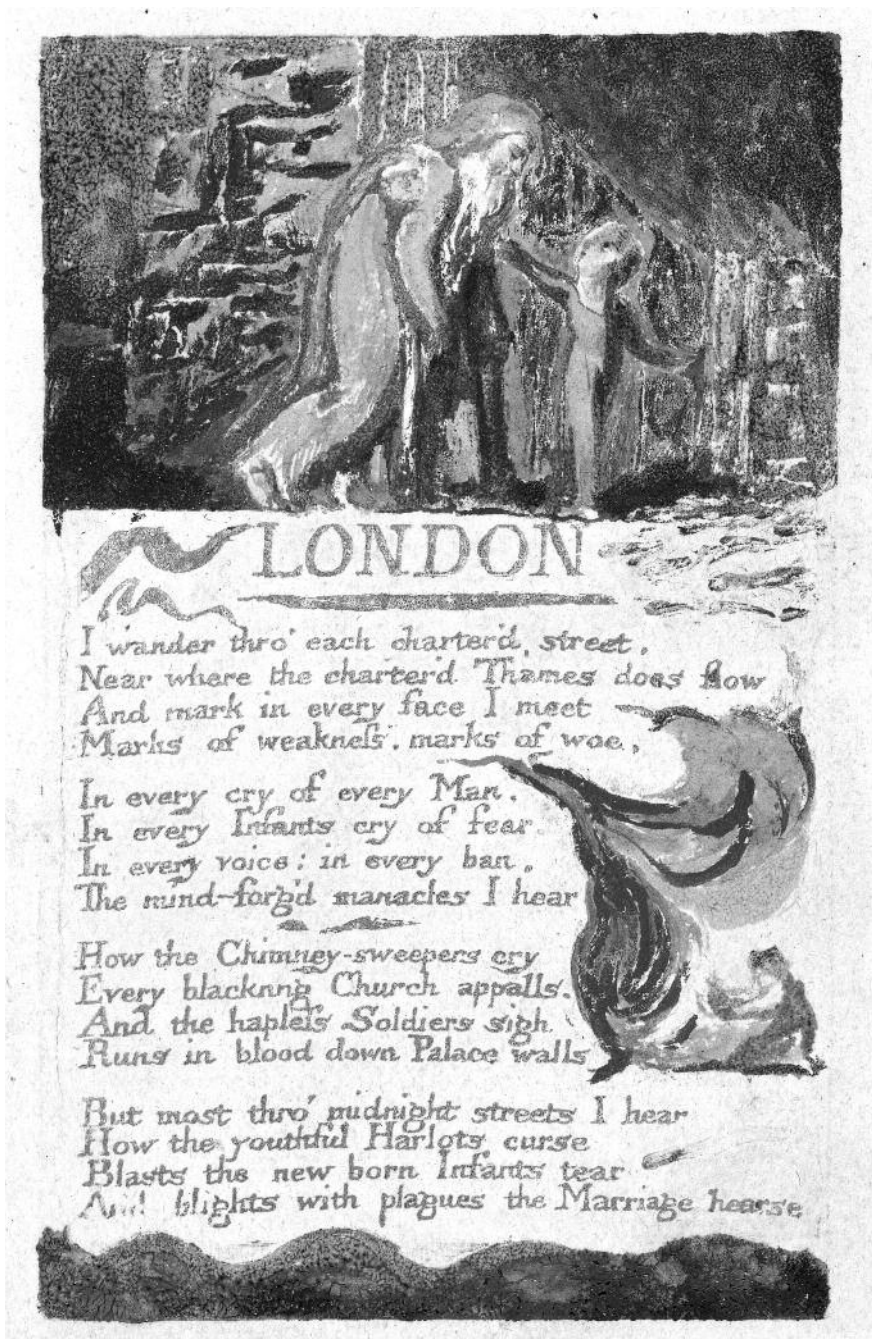 LONDON
I wander thro' each charter'd street,
Near where the charter'd Thames does flow
And mark in every face I meet
Marks of weakneſs, marks of woe,
In every cry of every Man,
In every Infants cry of fear
In every voice: in every ban,
The mind-forg'd manacles I hear
How the Chimney-sweepers cry
Every blackning Church appalls,
And the hapleſs Soldiers sigh
Runs in blood down Palace walls
But most thro' midnight streets I hear
How the youthful Harlots curse
Blasts the new born Infants tear
And blights with plagues the Marriage hearse